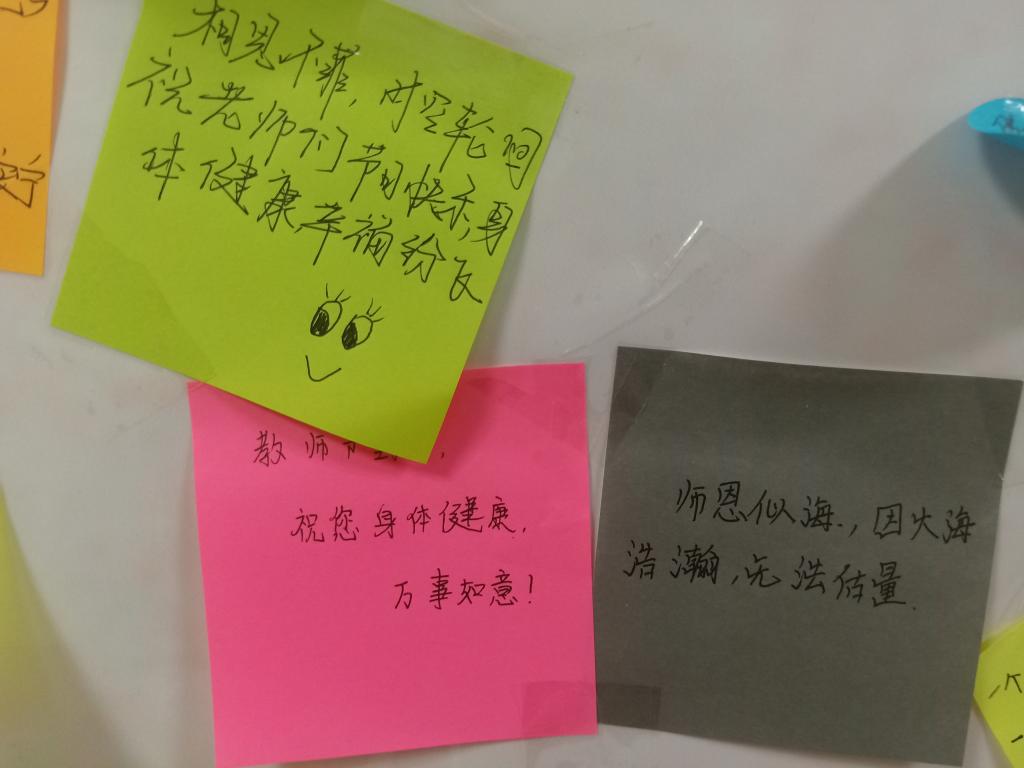 相恩不罪，时空轮回
祝老师们节日快乐，身
体健康幸福纷飞
教师节
祝您身体健康，
万事如意！
师恩似海，因大海
浩瀚，无法估量.